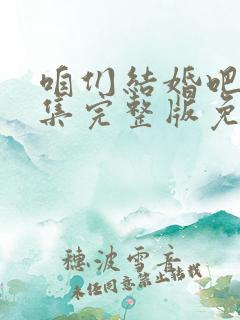 咱们结婚吧
集完整版免
穗波雪音
未经同意禁止转载